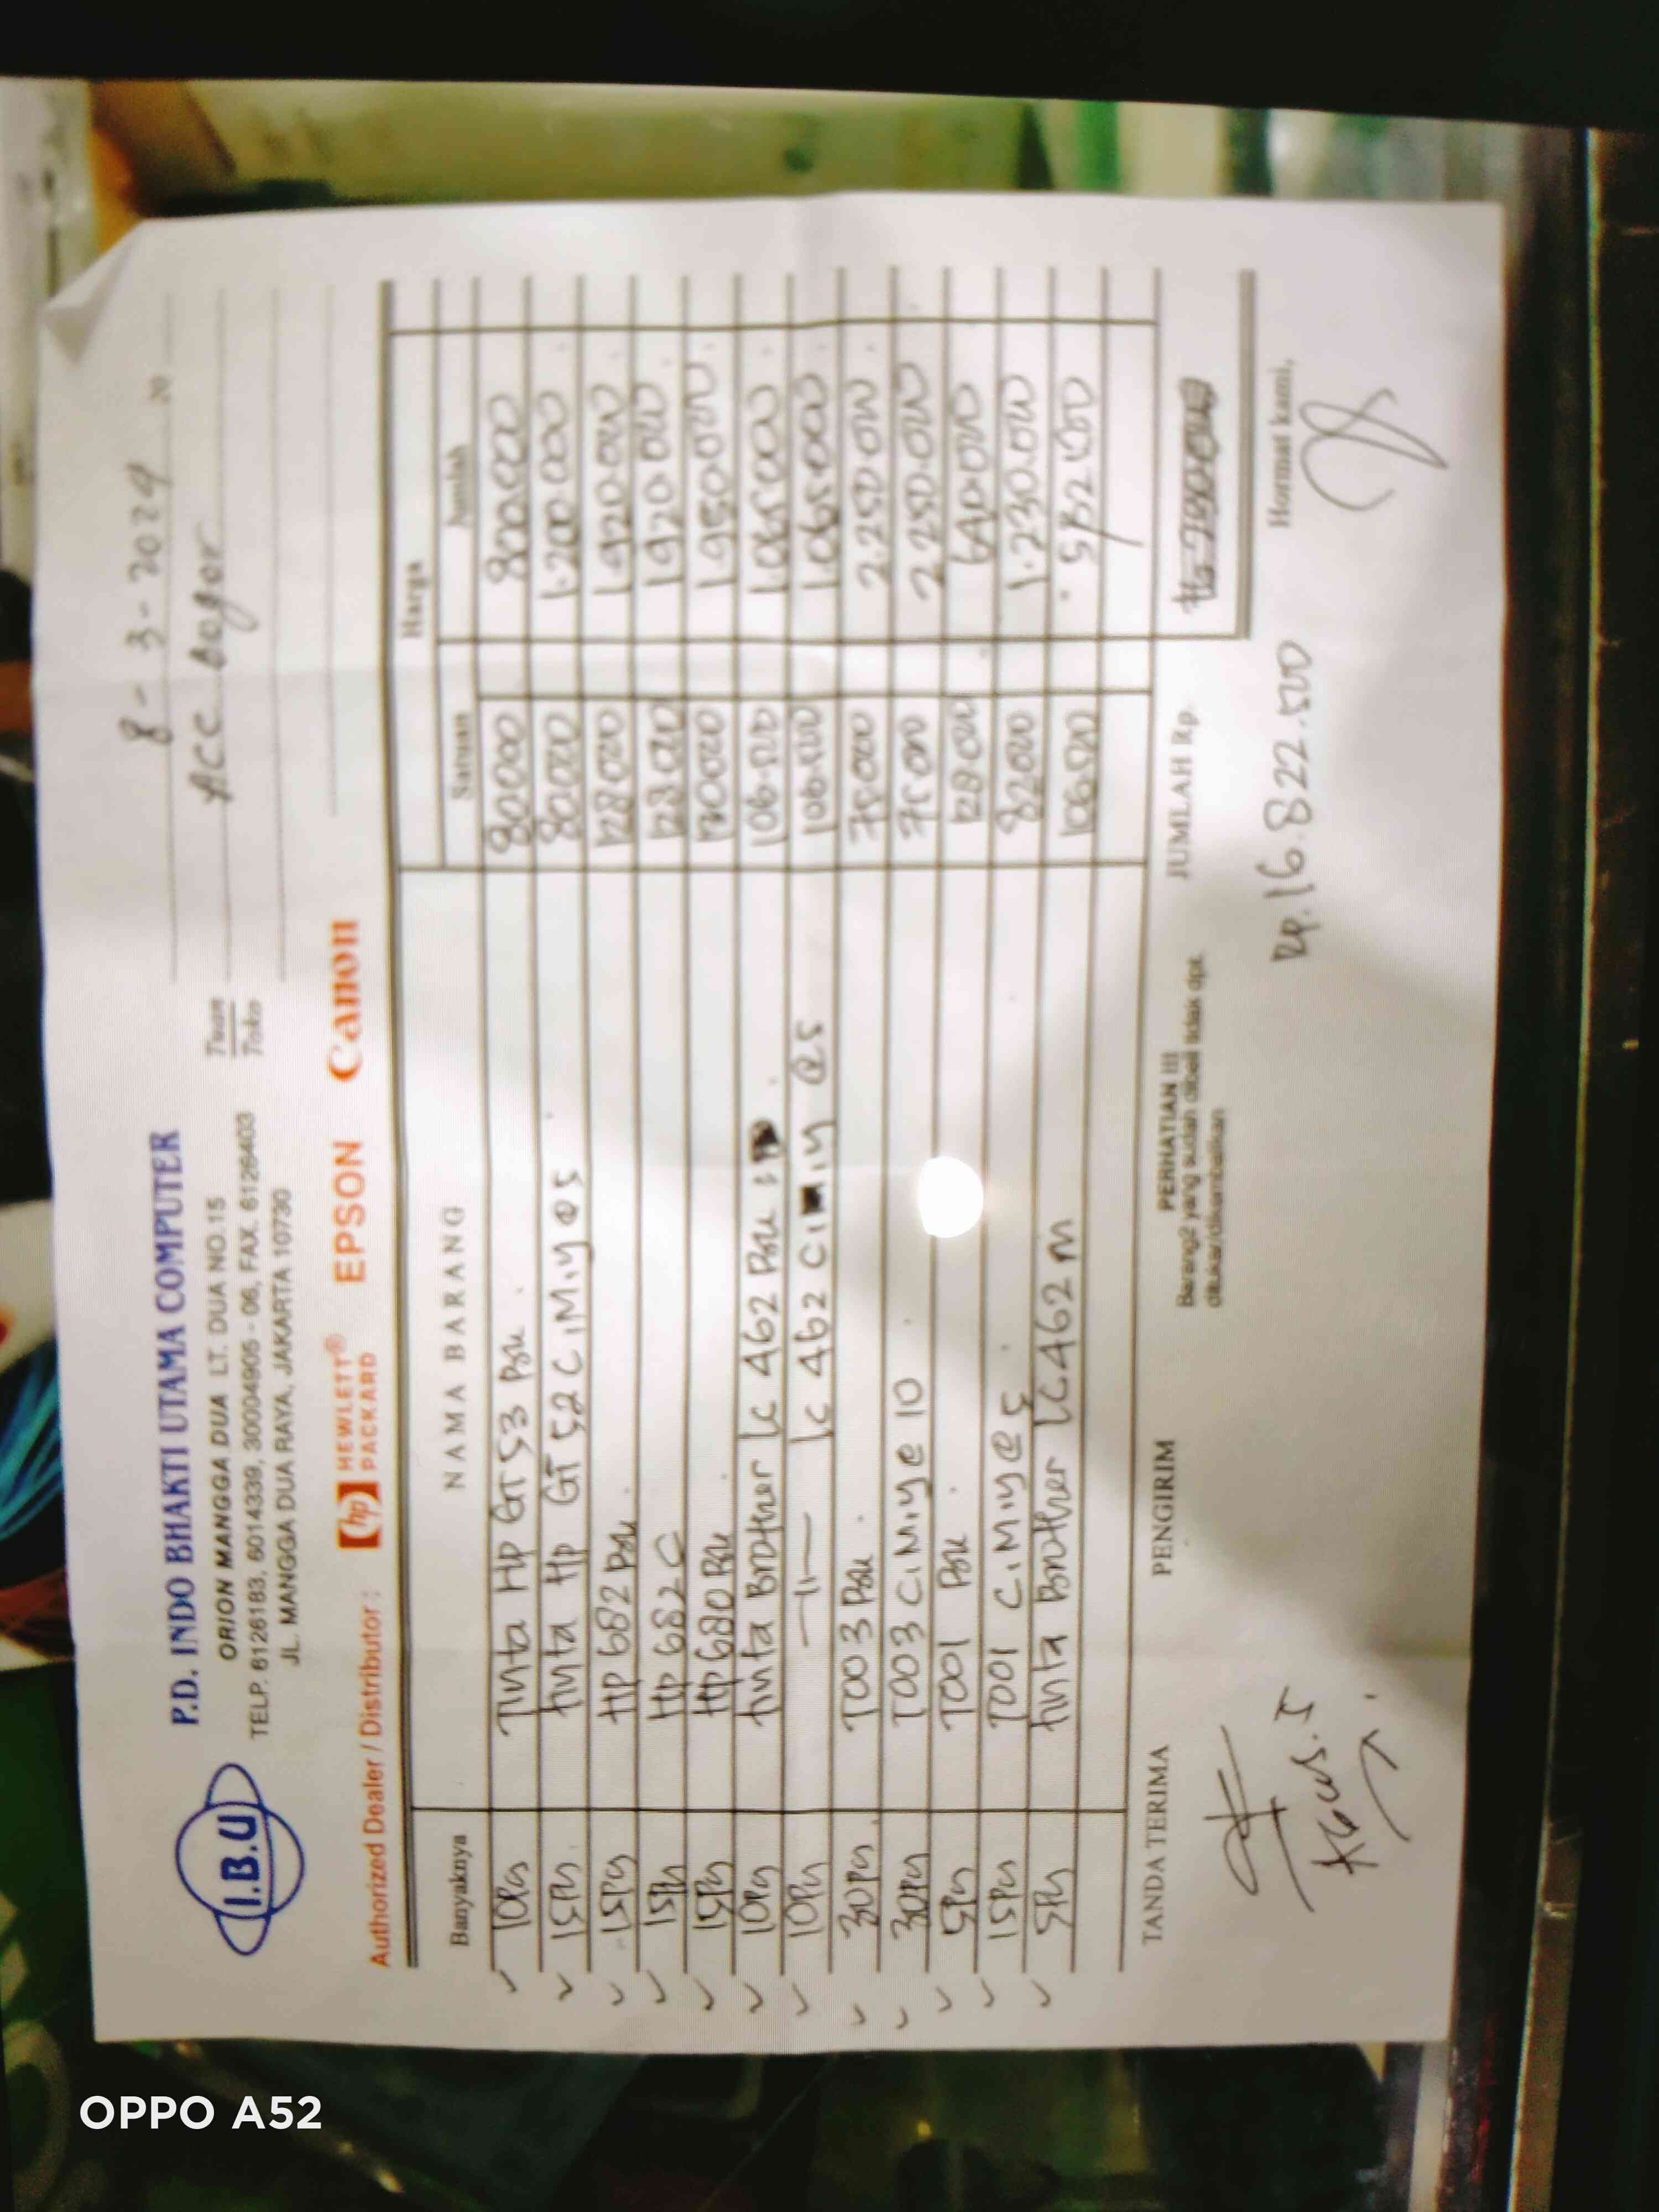 I.B.U
P.D. INDO BHAKTI UTAMA COMPUTER
ORION MANGGA DUA LT. DUA NO.15
TELP. 6126183, 6014339, 30004905 - 06, FAX. 6126403
JL. MANGGA DUA RAYA, JAKARTA 10730
8 - 3 - 2024 20
Tuan
Toko
ACC Bogor
Authorized Dealer / Distributor : hp HEWLETT® PACKARD EPSON Canon
Banyaknya NAMA BARANG Harga
Satuan Jumlah
10Pcs Tinta Hp GT 53 Blk 80000 800.000
15Pcs tinta Hp GT 52 C,M,y @5 80.000 1.200.000
15Pcs Hp 682 Blk 128000 1.920.000
15Pcs Hp 682 C 128.000 1.920.000
15Pcs Hp 680 Blk 130000 1.950.000
10Pcs tinta Brother LC 462 Blk 106.500 1.065.000
10Pcs —11— LC 462 C,y @5 106.500 1.065.000
30Pcs T003 Blk 75.000 2.250.000
30Pcs T003 C,M,y @ 10 75.000 2.250.000
5Pcs T001 Blk 128.000 640.000
15Pcs T001 C,M,y @ 5 82000 1.230.000
5Pcs tinta Brother LC 462 m 106.500 532.500
TANDA TERIMA PENGIRIM PERHATIAN !!! JUMLAH Rp.
Barang2 yang sudah dibeli tidak dpt.
ditukar/dikembalikan
Rp. 16.822.500
Hormat kami,
OPPO A52